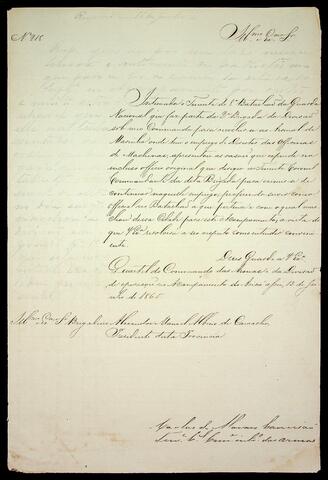 Nº 218
Illmo Exmo Sr
Intimado o Tenente do 1º Batalhão da Guarda
Nacional que faz parte da 2ª Brigada da Divisão
sob meo Commando para recolher-se ao Arsenal de
Marinha onde tem o emprego de das Officinas
de Machinas, apresentou as rasões que expende no
incluso officio original que dirigio ao Tenente Coronel
Commandante da dita Brigada para eximir-se de
continuar naquelle emprego, preferindo seo
official no Batalhão a que pertence e com o qual
dessa Cidade para este Acampamento, a vista do
que VExa resolverá a respeito como entender conveni-
ente.
Deos Guarde a VExa
Quartel do Commando das Armas e da Divisão
de operações no Acampamento do 13 de
de 1865
Illmo Exmo Sr Brigadeiro Alexandre Manoel Albino de Carvalho
Presidente desta Provincia
Carlos de Moraes Camisão
Tene Cel Comte das Armas